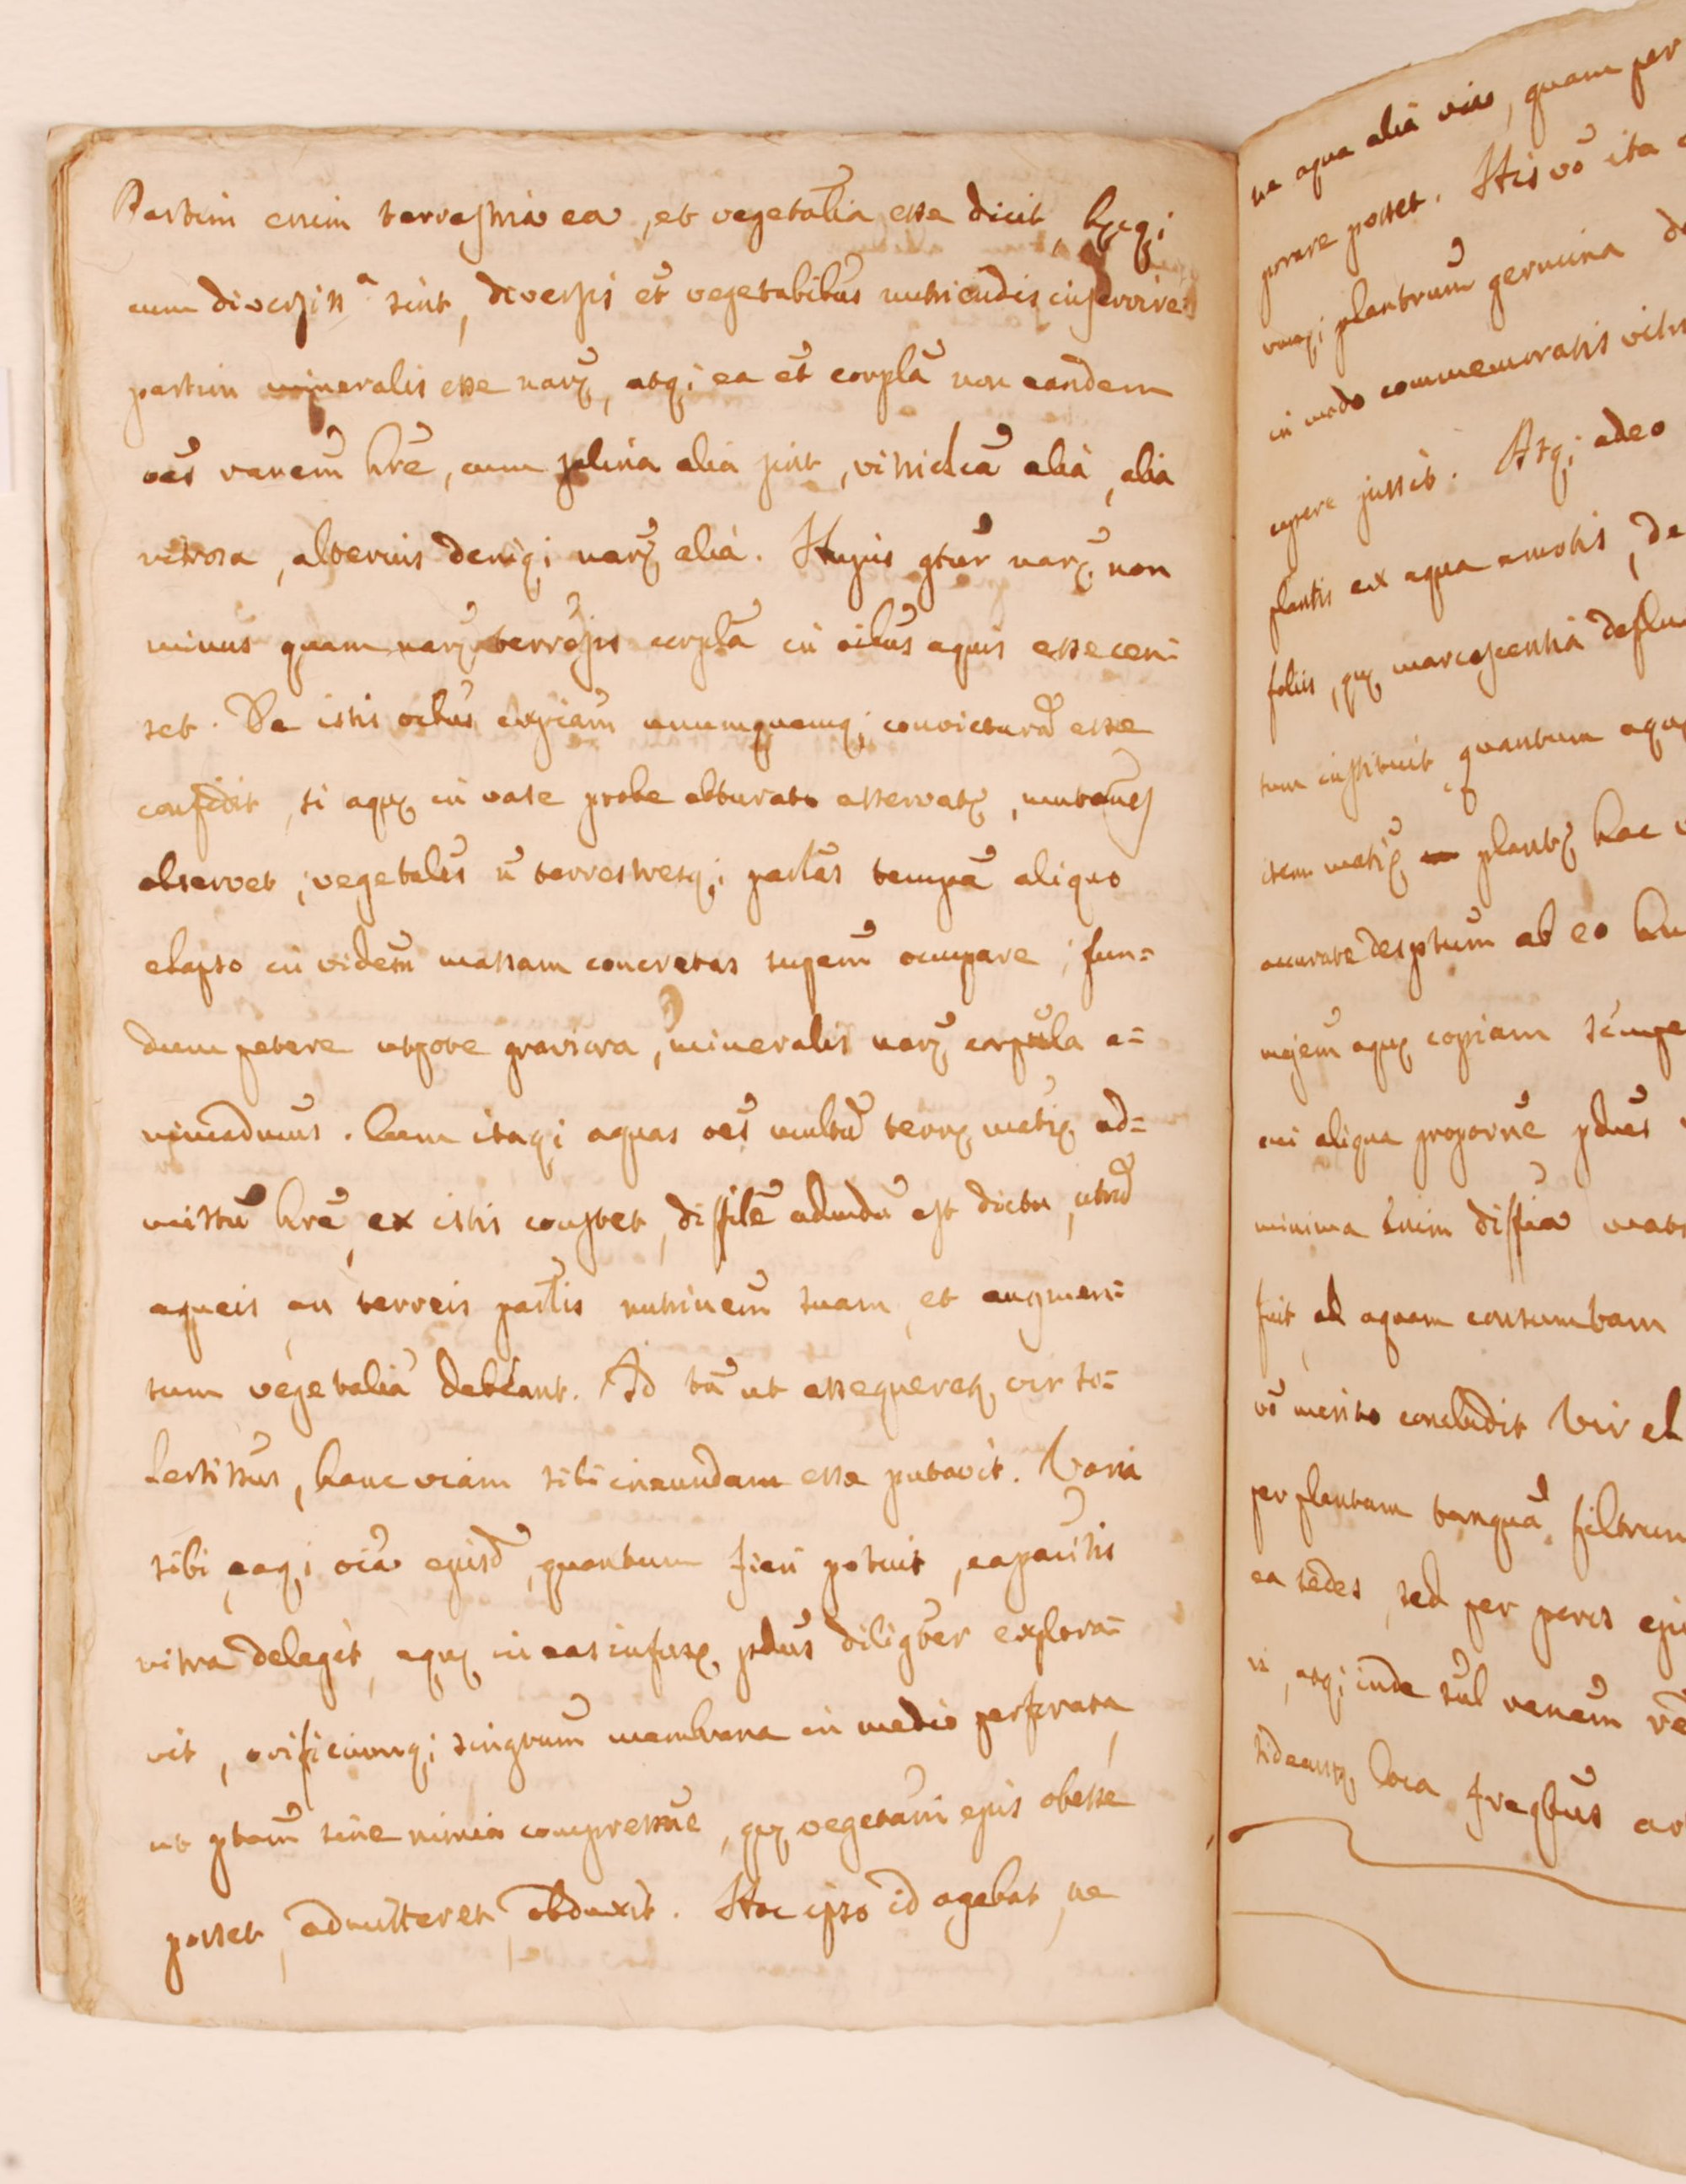 Partim enim terrestria ea, et vegetalia esse dicit, hęcq;
cum diversiss.a sint, diversis et̃ vegetabilibus nutriendis inservire:
partim mineralis esse narę, atq; ea et̃ corpla non eandem
oẽs ranem hrẽ, cum salina alia sint, vitriolica alia, alia
nitrosa, alterius deniq; narę alia. Hujus gtur narę non
minus quam narę terrestris corpla in oibus aquis esse cen=
set. De istis oibus expiam unumquemq; convicturã esse
confidit, si aquę in vase probe obturato asservatę, mutaoñes
observet; vegetales ñ terrestresq; partes tempre aliquo
elapso in viridem massam concretas supem occupare; fun=
dum petere utpote graviora, mineralis narę corpula a=
nimadvimus. Cum itaq; aquas oẽs multũ terrę matię ad=
mistũ hrẽ, ex istis constet, difficile admodũ est dictu, utrũ
aqueis, an terreis partis nutrinem suam, et augmen=
tum vegetalia debeant. Id tñ ut assequeretę, vir so=
lertissus, hanc viam sibi ineundam esse putavit. Varia
sibi, eaq; oia ejusd, quantum fieri potuit, capacitis
vitra delegit, aquę in eas infusę pdus diligter explora=
vit, orificiumq; singrum membrana in medio perforata,
ut ptam sine nimia compressne, quę vegetani ejus obesse
posset, admitteret, obduxit. Hoc ipso id agebat, ne
ne aqua alia via, quam per
porare posset. His võ ita
plantrum germina
in modo commemoratis vitr
cepere jussit. Atq; adeo
plantis ex aqua amotis, de
foliis, quę marcescentia deflu
tum instituit, quantum aquę
item matię plantę hac
accurate desptum ab eo
majem aquę copiam sempe
cui aliqua proporne pdues
minima enim diffia
fuit, ad aquam consumtam
võ merito concludit Vir cl
per plantam tanquã filtrum
ea sedes, sed per poros eju
atq; inde sul venem
sideantę loca fregtius